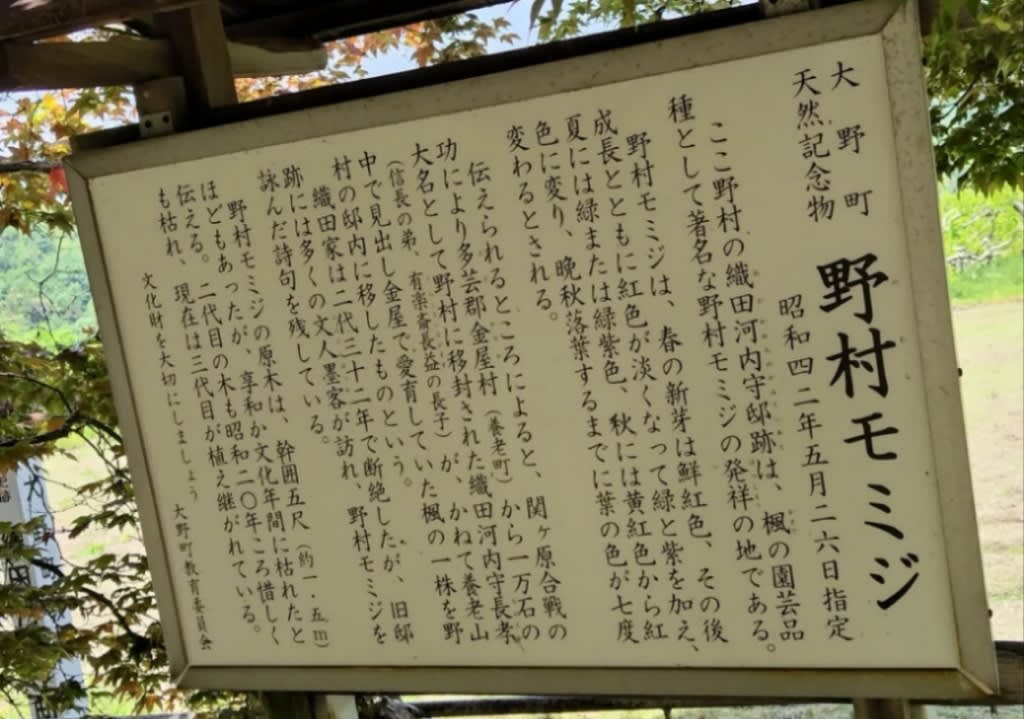 大野町
天然記念物
野村モミジ
昭和四二年五月二六日指定
ここ野村の織田河内守邸跡は、楓の園芸品
種として著名な野村モミジの発祥の地である。
野村モミジは、春の新芽は鮮紅色、その後
成長とともに紅色が淡くなって緑と紫を加え、
夏には緑または緑紫色、秋には黄紅色から紅
色に変り、晩秋落葉するまでに葉の色が七度
変わるとされる。
伝えられるところによると、関ヶ原合戦の
功により多芸郡金屋村（養老町）から一万石の
大名として野村に移封された織田河内守長孝
（信長の弟、有楽斎長益の長子）が、かねて養老山
中で見出し金屋で愛育していた楓の一株を野
村の邸内に移したものという。
織田家は二代三十二年で断絶したが、旧邸
跡には多くの文人墨客が訪れ、野村モミジを
詠んだ詩句を残している。
野村モミジの原木は、幹囲五尺（約一・五m）
ほどもあったが、享和か文化年間に枯れたと
伝える。二代目の木も昭和二〇年ころ惜しく
も枯れ、現在は三代目が植え継がれている。
文化財を大切にしましょう　大野町教育委員会